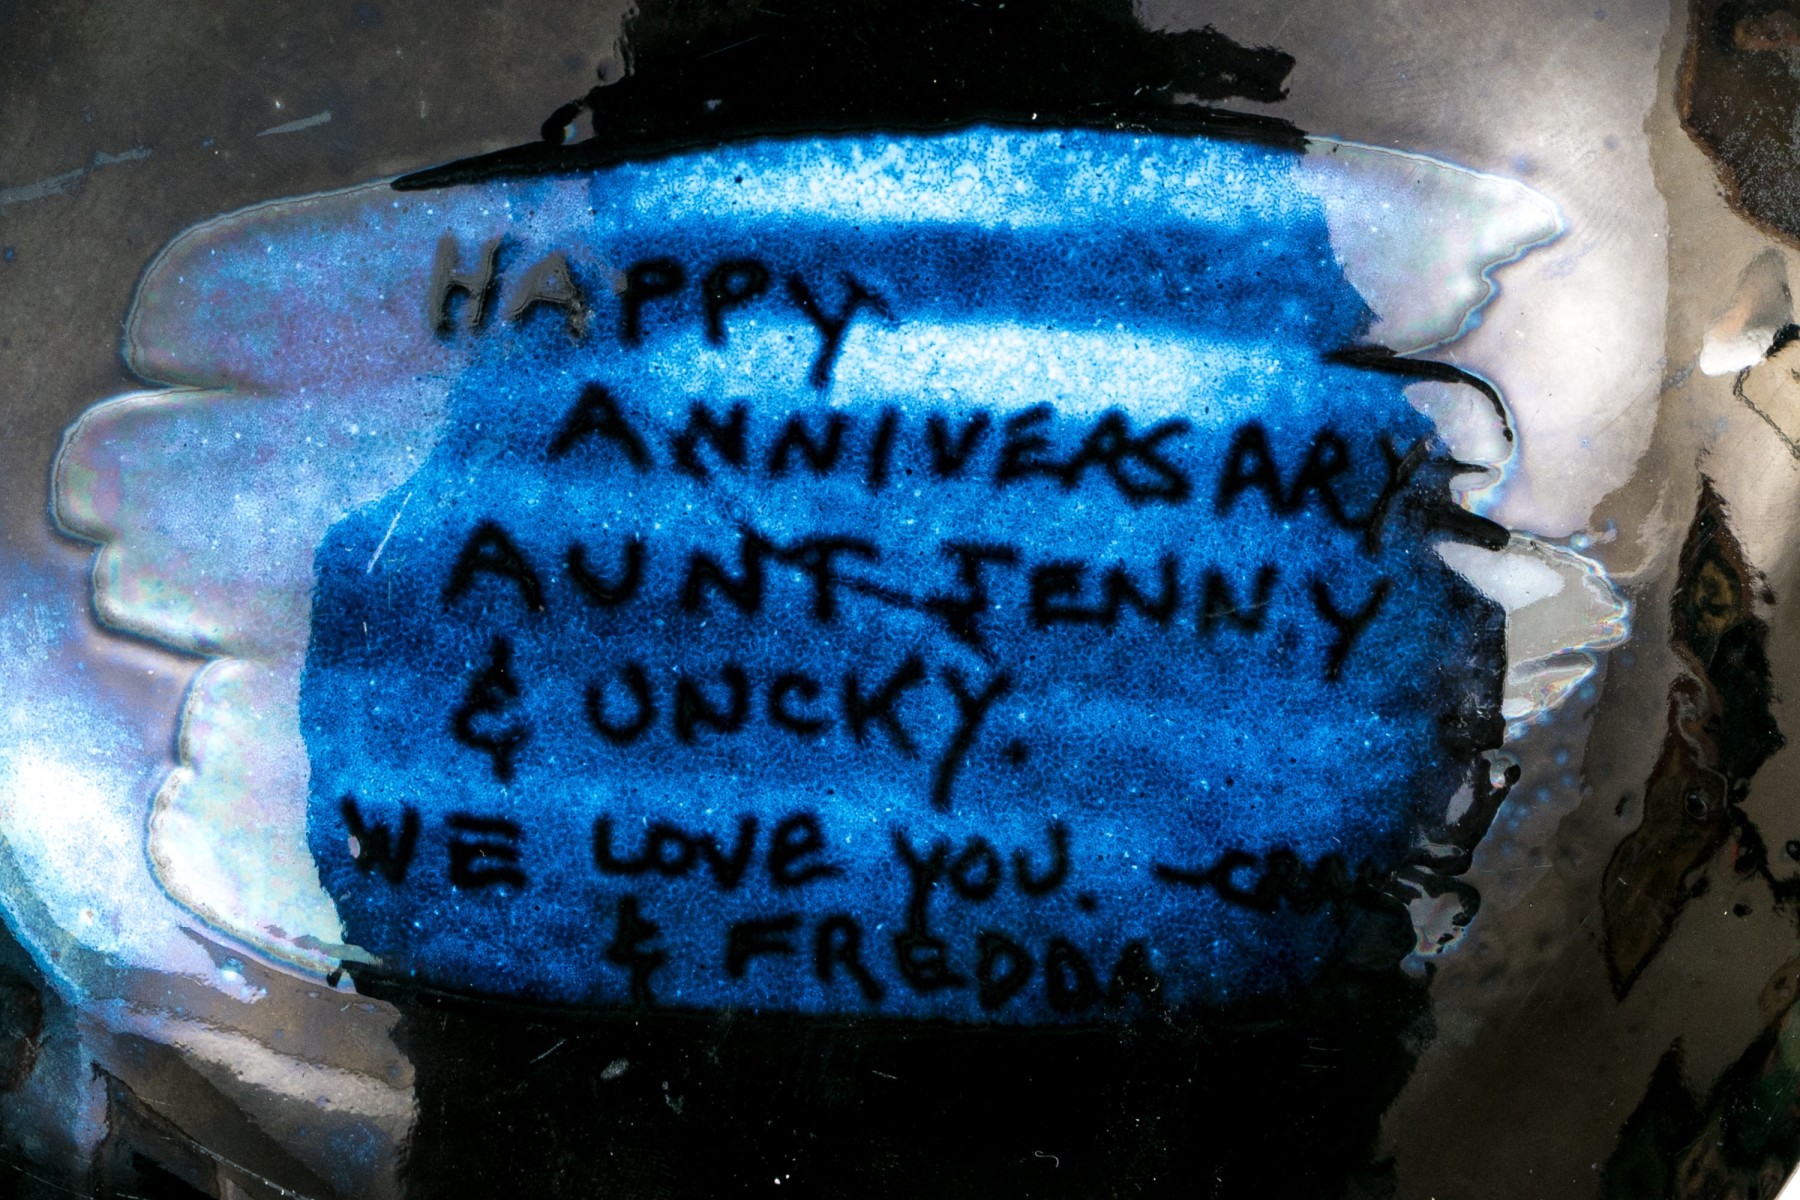 HAPPY
ANNIVERSARY
AUNT JENNY
& UNCKY.
WE LOVE YOU. -
& FREDDA